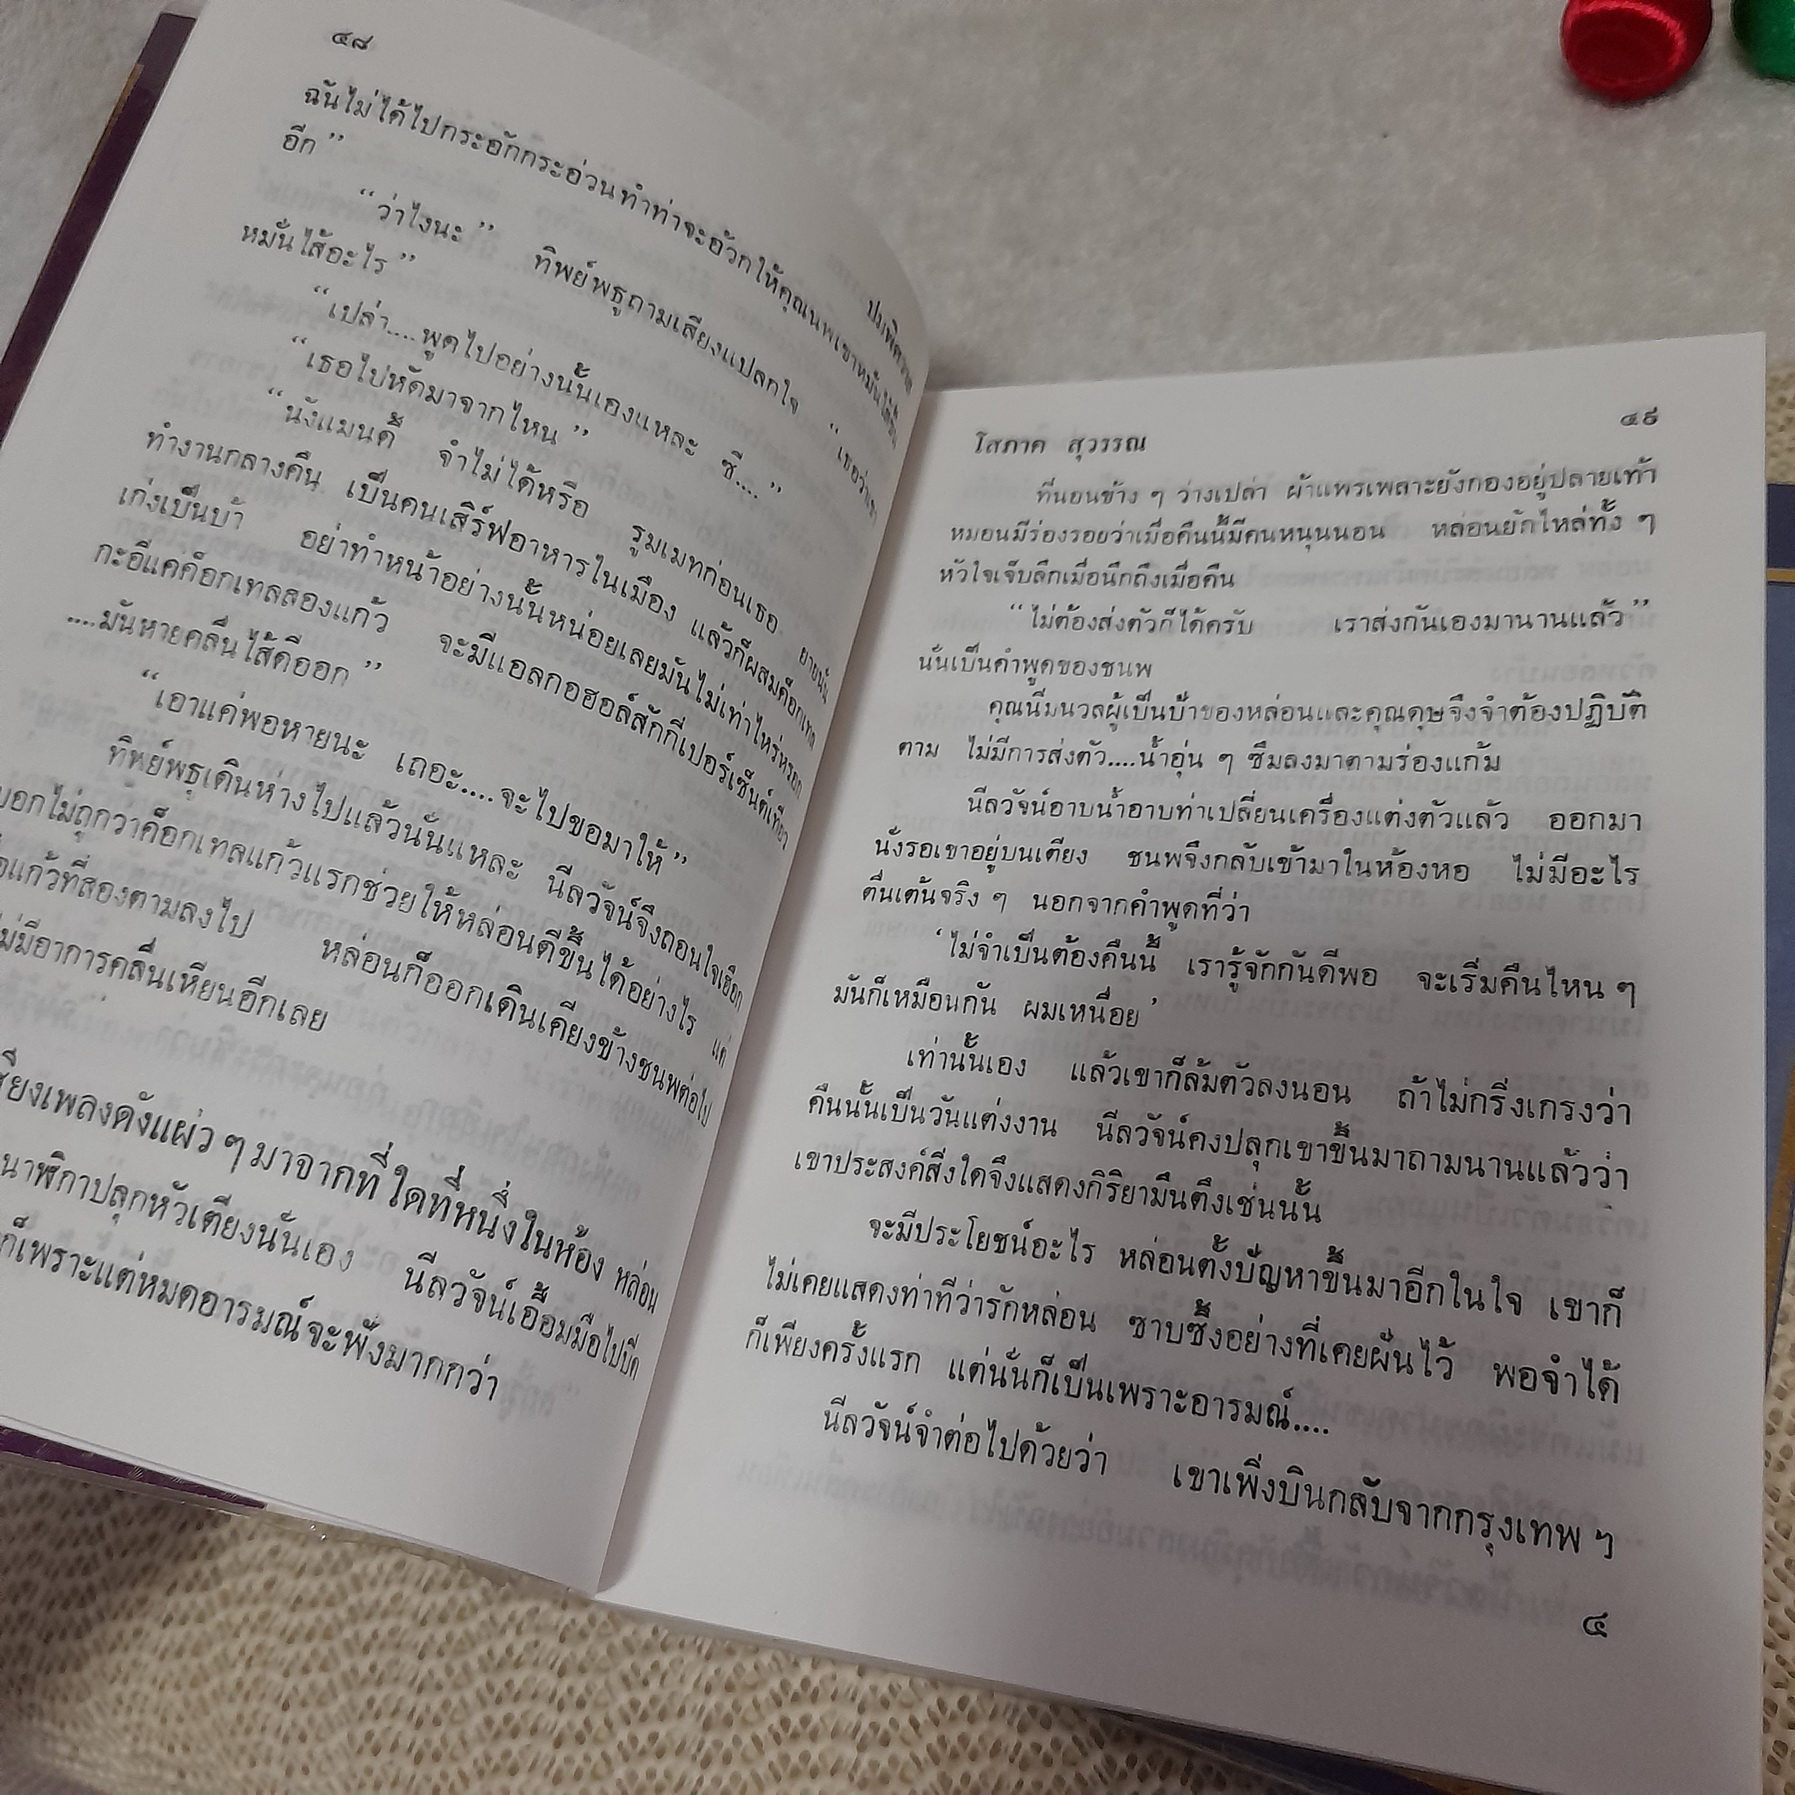 ๔๘
ฉันไม่ได้ไปกระอักกระอ่วนทำท่าจะอ้วกให้คุณนพเขาหมั่นไส้
อีก”
“ว่าไงนะ” ทิพย์พธูถามเสียงแปลกใจ “เธอว่า
หมั่นไส้อะไร”
“เปล่า....พูดไปอย่างนั้นเองแหละ ซี....”
“เธอไปหัดมาจากไหน”
“นังแมนดี้ จำไม่ได้หรือ รูมเมทก่อนเธอ ยายนั่น
ทำงานกลางคืน เป็นคนเสิร์ฟอาหารในเมือง แล้วก็ผสมค็อกเทล
เก่งเป็นบ้า อย่าทำหน้าอย่างนั้นหน่อยเลยมันไม่เท่าไหร่หรอก
กะอีแค่ค็อกเทลสองแก้ว จะมีแอลกอฮอล์สักกี่เปอร์เซ็นต์เทียว
....มันหายคลื่นไส้ดีออก”
“เอาแค่พอหายนะ เถอะ....จะไปขอมาให้”
ทิพย์พธูเดินห่างไปแล้วนั่นแหละ นีลวัจน์จึงถอนใจเฮือก
บอกไม่ถูกว่าค็อกเทลแก้วแรกช่วยให้หล่อนดีขึ้นได้อย่างไร แต่
แก้วที่สองตามลงไป หล่อนก็ออกเดินเคียงข้างชนพต่อไป
ไม่มีอาการคลื่นเหียนอีกเลย
เสียงเพลงดังแผ่ว ๆ มาจากที่ใดที่หนึ่งในห้อง หล่อน
นาฬิกาปลุกหัวเตียงนั่นเอง นีลวัจน์เอื้อมมือไปปิด
ก็เพราะแต่หมดอารมณ์จะฟังมากกว่า
โสภาค สุวรรณ
๔๙
ที่นอนข้าง ๆ ว่างเปล่า ผ้าแพรเพลาะยังกองอยู่ปลายเท้า
หมอนมีร่องรอยว่าเมื่อคืนนี้มีคนหนุนนอน หล่อนยักไหล่ทั้ง ๆ
หัวใจเจ็บลึกเมื่อนึกถึงเมื่อคืน
“ไม่ต้องส่งตัวก็ได้ครับ เราส่งกันเองมานานแล้ว”
นั่นเป็นคำพูดของชนพ
คุณนิ่มนวลผู้เป็นป้าของหล่อนและคุณดุษจึงจำต้องปฏิบัติ
ตาม ไม่มีการส่งตัว....น้ำอุ่น ๆ ซึมลงมาตามร่องแก้ม
นีลวัจน์อาบน้ำอาบท่าเปลี่ยนเครื่องแต่งตัวแล้ว ออกมา
นั่งรอเขาอยู่บนเตียง ชนพจึงกลับเข้ามาในห้องหอ ไม่มีอะไร
ตื่นเต้นจริง ๆ นอกจากคำพูดที่ว่า
‘ไม่จำเป็นต้องคืนนี้ เรารู้จักกันดีพอ จะเริ่มคืนไหน ๆ
มันก็เหมือนกัน ผมเหนื่อย’
เท่านั้นเอง แล้วเขาก็ล้มตัวลงนอน ถ้าไม่กริ่งเกรงว่า
คืนนั้นเป็นวันแต่งงาน นีลวัจน์คงปลุกเขาขึ้นมาถามนานแล้วว่า
เขาประสงค์สิ่งใดจึงแสดงกิริยามึนตึงเช่นนั้น
จะมีประโยชน์อะไร หล่อนตั้งปัญหาขึ้นมาอีกในใจ เขาก็
ไม่เคยแสดงท่าทีว่ารักหล่อน ซาบซึ้งอย่างที่เคยฝันไว้ พอจำได้
ก็เพียงครั้งแรก แต่นั่นก็เป็นเพราะอารมณ์....
นีลวัจน์จำต่อไปด้วยว่า เขาเพิ่งบินกลับจากกรุงเทพ ๆ
๔